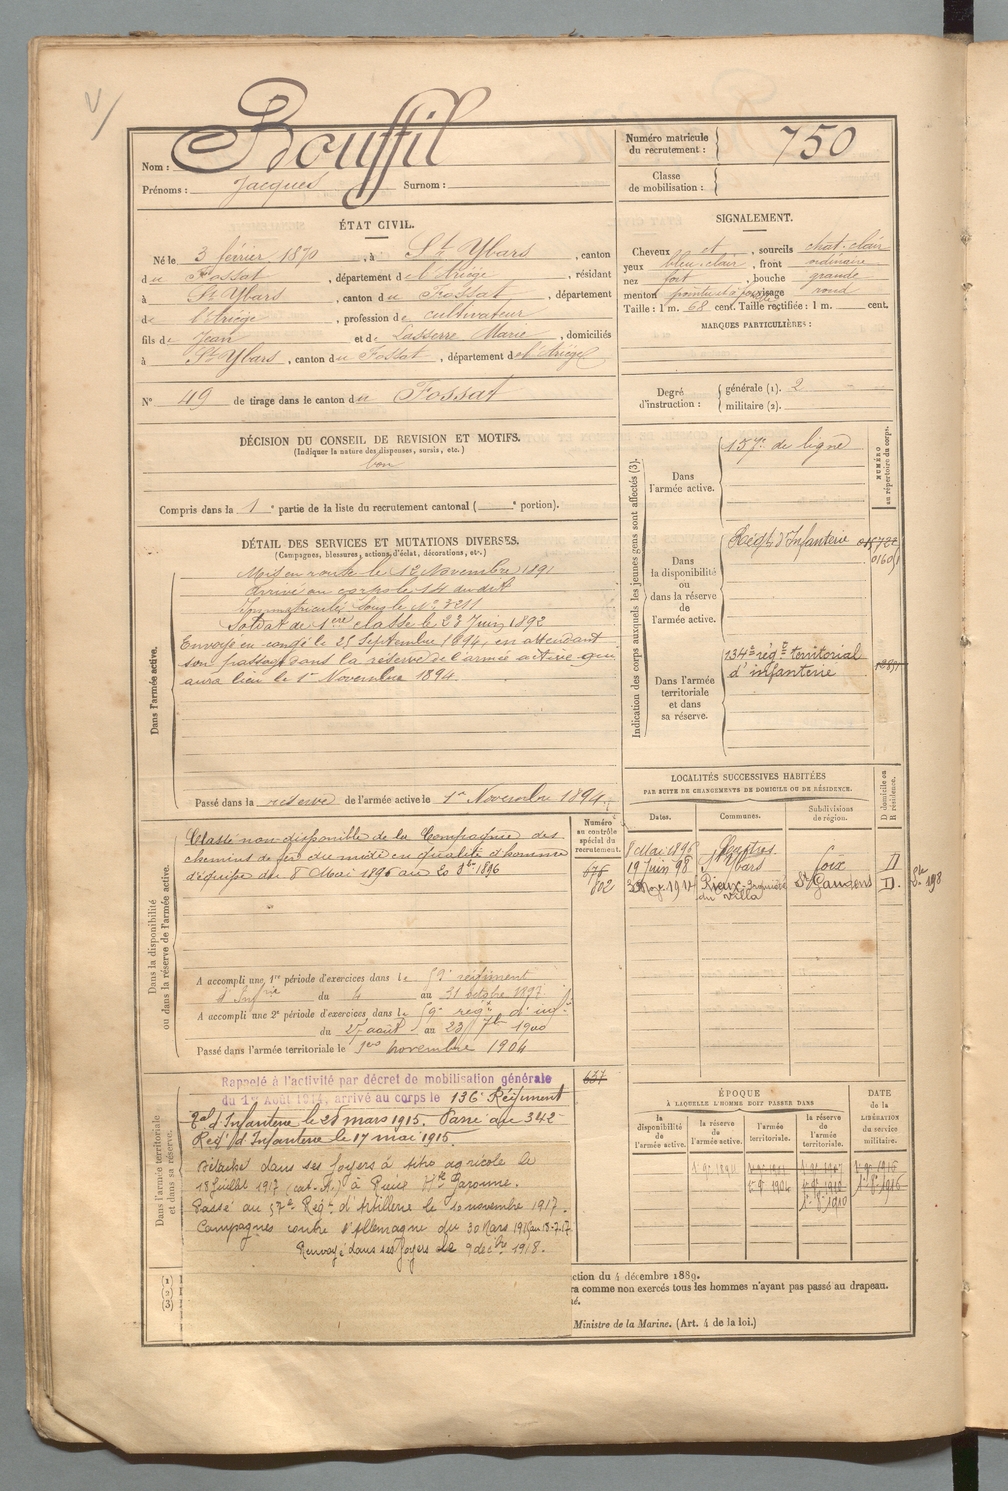 Nom : Bouffil
Prénoms : Jacques Surnom :
Numéro matricule du recrutement : 750
Classe de mobilisation :
ÉTAT CIVIL.
Né le 3 février 1870, à St Ybars, canton
du Fossat, département de l'Ariège, résidant
à St Ybars, canton du Fossat, département
de l'Ariège, profession de cultivateur
fils de Jean et de Lasserre Marie, domiciliés
à St Ybars, canton du Fossat, département de l'Ariège
N° 49 de tirage dans le canton du Fossat
SIGNALEMENT.
Cheveux et, sourcils chat. clair
yeux bleu clair, front ordinaire
nez fort, bouche grande
menton pointu et à fossette visage rond
Taille : 1 m. 68 cent. Taille rectifiée : 1 m. cent.
MARQUES PARTICULIÈRES :
Degré d'instruction : générale (1). 2
militaire (2).
DÉCISION DU CONSEIL DE REVISION ET MOTIFS.
(Indiquer la nature des dispenses, sursis, etc.)
bon
Compris dans la 1e partie de la liste du recrutement cantonal ( e portion).
DÉTAIL DES SERVICES ET MUTATIONS DIVERSES.
(Campagnes, blessures, actions d'éclat, décorations, etc.)
Dans l'armée active.
Mis en route le 12 Novembre 1891
Arrivé au corps le 14 du dit
Immatriculé sous le N° 3211
Soldat de 1ère classe le 23 Juin 1892
Envoyé en congé le 25 Septembre 1894, en attendant
son passage dans la réserve de l'armée active qui
aura lieu le 1er Novembre 1894.
Passé dans la réserve de l'armée active le 1er Novembre 1894.
Indication des corps auxquels les jeunes gens sont affectés (3).
NUMÉRO au répertoire du corps.
Dans l'armée active.
137e de ligne
Dans la disponibilité ou dans la réserve de l'armée active.
Régt d'Infanterie
Dans l'armée territoriale et dans sa réserve.
134e régt territorial
d'infanterie
LOCALITÉS SUCCESSIVES HABITÉES
PAR SUITE DE CHANGEMENTS DE DOMICILE OU DE RÉSIDENCE.
Dates. Communes. Subdivisions de région. D domicile ou R résidence.
8 Mai 1896
19 Juin 98 St Ybars Foix D
1914 Rieux du Villa St Gaudens D.
Dans la disponibilité ou dans la réserve de l'armée active.
Numéro au contrôle spécial du recrutement.
676
802
Classé non-disponible de la Compagnie des
chemins de fer du midi en qualité d'homme
d'équipe du 8 Mai 1896 au 20 8bre 1896
A accompli une 1re période d'exercices dans le 59e régiment
d'Infrie du 4 au 31 octobre 1897
A accompli une 2e période d'exercices dans le 59e régt d'inf.
du 27 août au 23 7bre 1900
Passé dans l'armée territoriale le 1er novembre 1904
Dans l'armée territoriale et dans sa réserve.
637
Rappelé à l'activité par décret de mobilisation générale
du 1er Août 1914, arrivé au corps le 136e Régiment
d'Infanterie le 28 mars 1915. Passé au 342e
Reg. d'Infanterie le 17 mai 1915.
Détaché dans ses foyers à titre agricole le
18 juillet 1917 (cat. A.) à Hte Garonne.
Passé au 57e Régt d'Artillerie le 10 novembre 1917.
Campagnes contre l'Allemagne du 30 Mars 1915 au 18-7-17
Renvoyé dans ses foyers le 9 décbre 1918.
ÉPOQUE
À LAQUELLE L'HOMME DOIT PASSER DANS
la disponibilité de l'armée active. la réserve de l'armée active. l'armée territoriale. la réserve de l'armée territoriale.
DATE de la LIBÉRATION du service militaire.
(1)
(2)
(3)
ction du 4 décembre 1889.
ra comme non exercés tous les hommes n'ayant pas passé au drapeau.
Ministre de la Marine. (Art. 4 de la loi.)